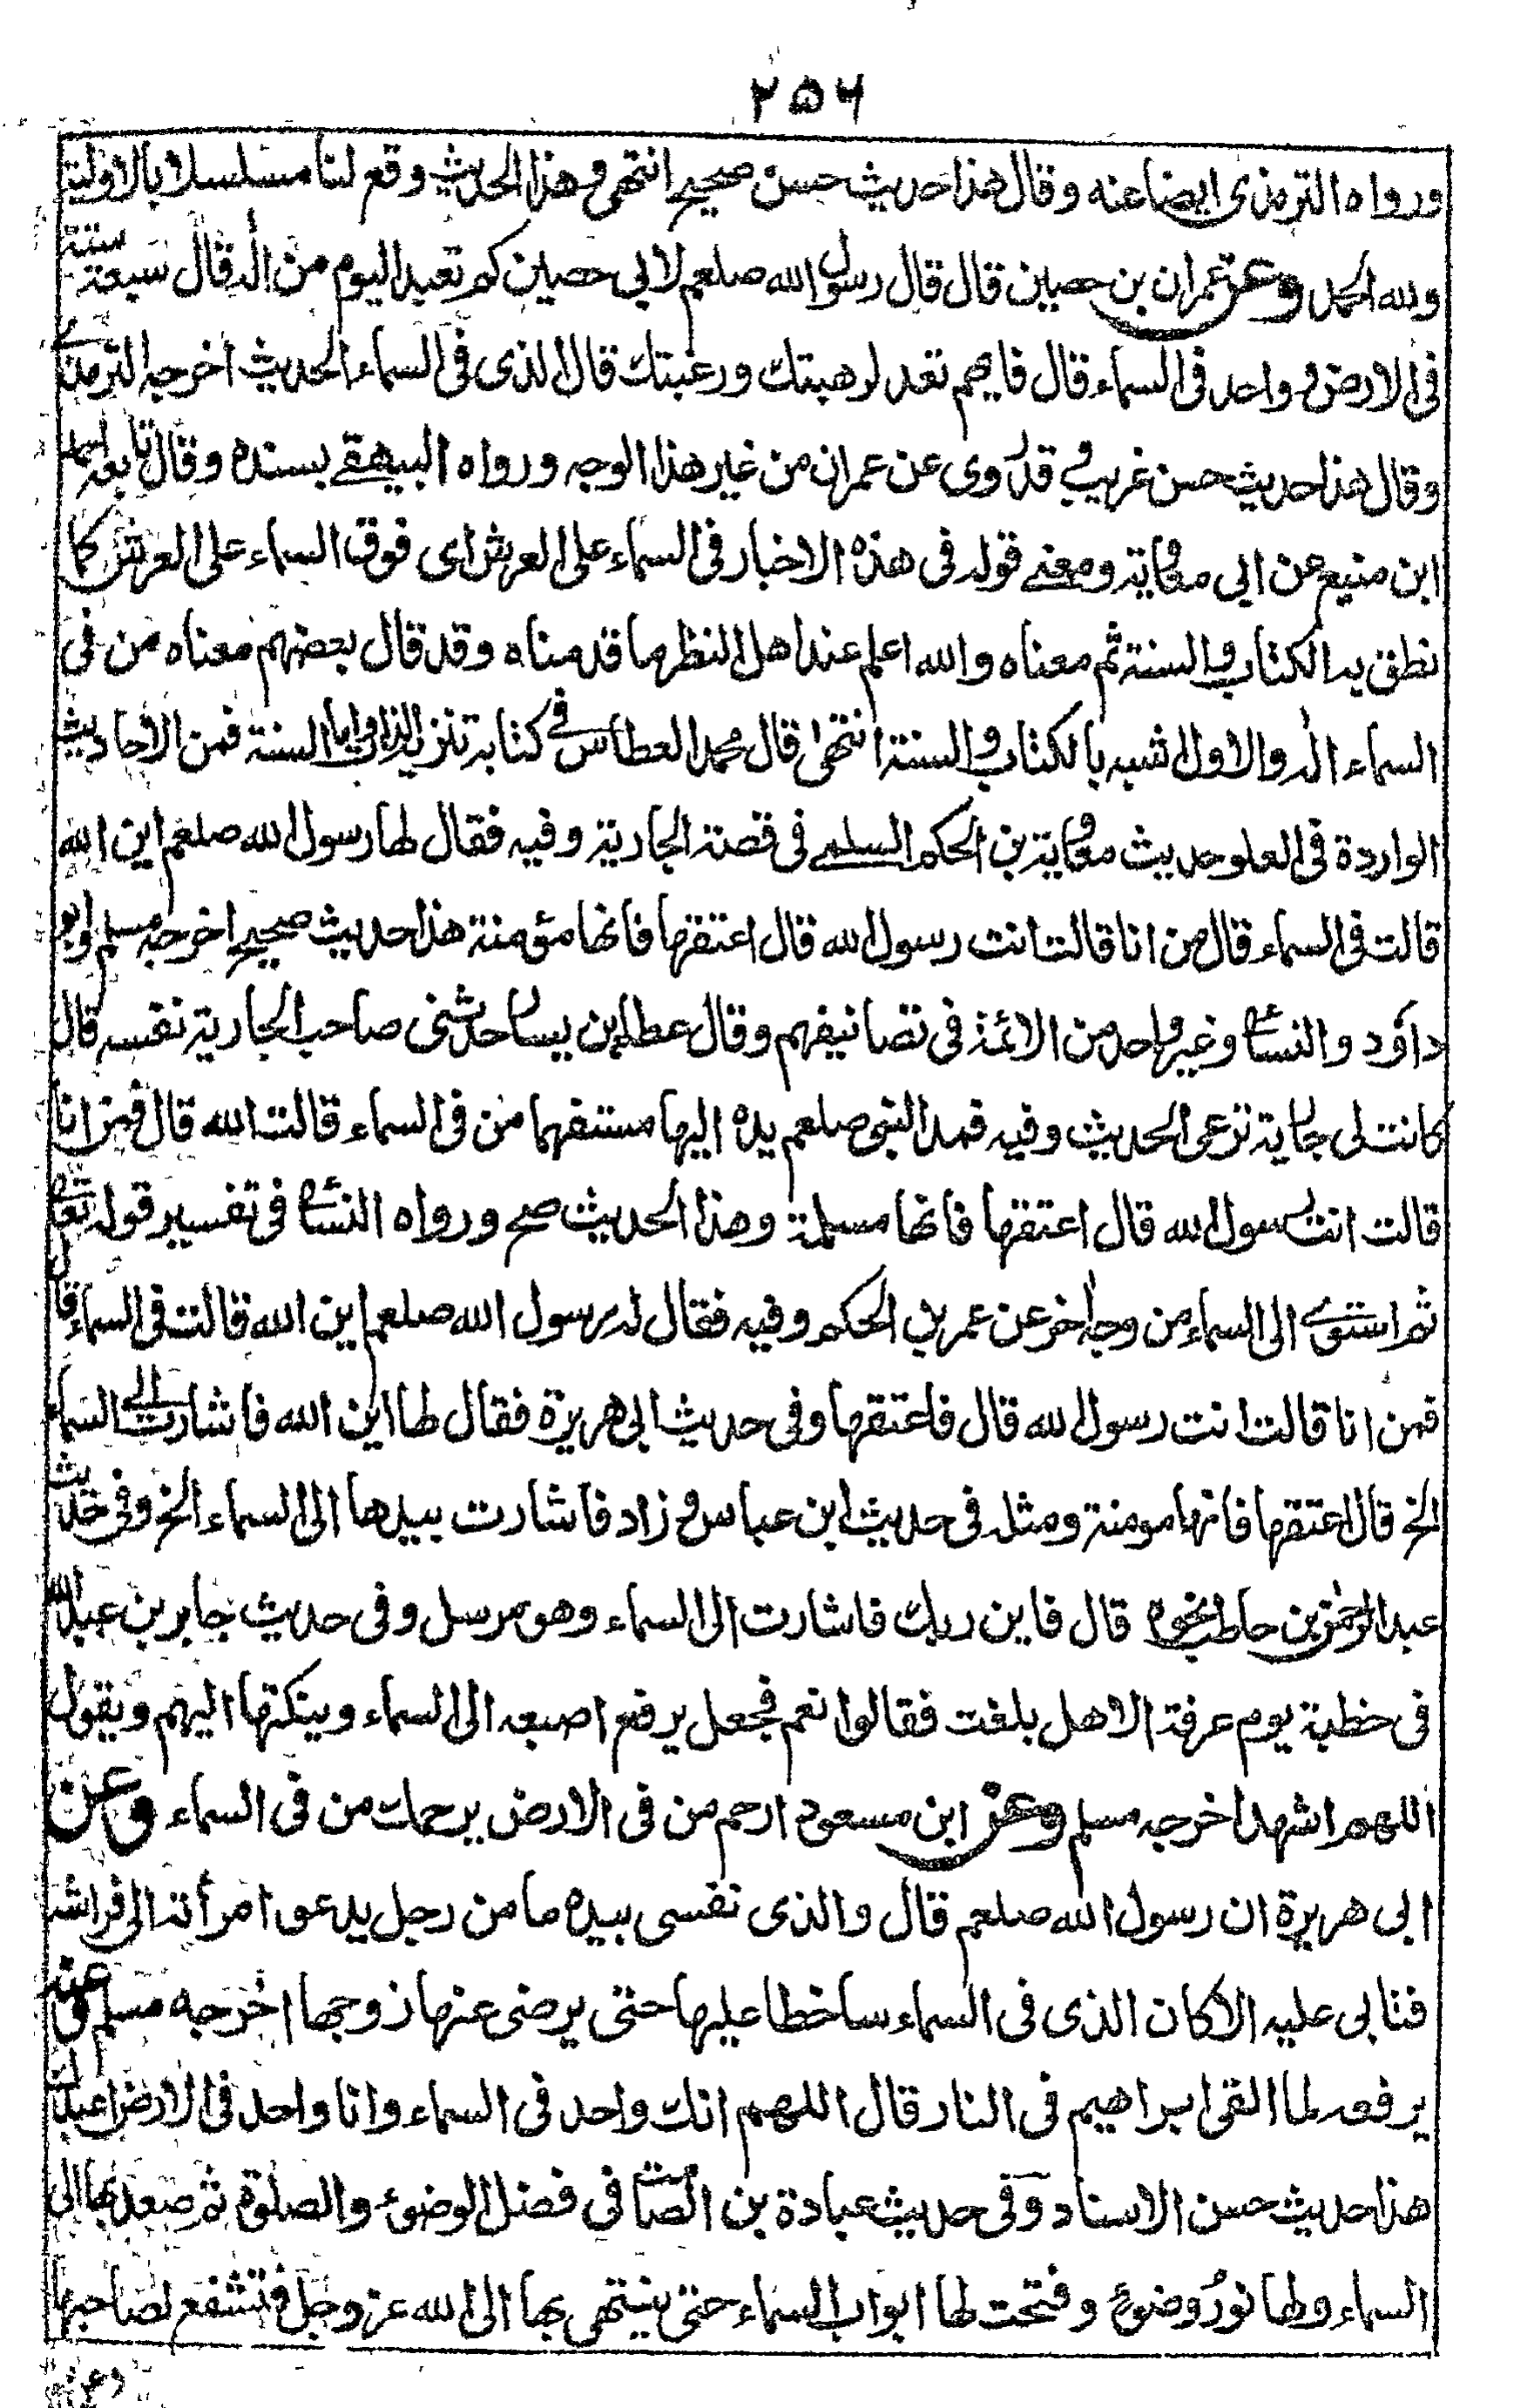 ۲۵۶
ورواه الترمذى ايضا عنه وقال هذا حديث حسن صحيح انتهى وهذا الحديث وقع لنا مسلسلا بالاولية
ولله الحمد وعن عمران بن حصين قال قال رسول الله صلعم لابى حصين كم تعبد اليوم من اله قال سبعة ستة
فى الارض وواحد فى السماء قال فايهم تعد لرهبتك ورغبتك قال الذى فى السماء الحديث اخرجه الترمذى
وقال هذا حديث حسن غريب وقد روى عن عمران من غير هذا الوجه ورواه البيهقے بسنده وقال تابعه احمد
ابن منيع عن ابى معاوية ومعنے قوله فى هذه الاخبار فى السماء على العرش اى فوق السماء على العرش كما
نطق به الكتاب والسنة ثم معناه والله اعلم عند اهل النظر ما قدمناه وقد قال بعضهم معناه من فى
السماء اله والاول اشبه بالكتاب والسنة انتهى قال محمد العطاس فے كتابه تنزيه الذات السنة فمن الاحاديث
الواردة فى العلو حديث معاوية بن الحكم السلمے فى قصة الجارية وفيه فقال لها رسول الله صلعم اين الله
قالت فى السماء قال من انا قالت انت رسول الله قال اعتقها فانها مؤمنة هذا حديث صحيح اخرجه مسلم وابو
داؤد والنسائى وغير واحد من الائمة فى تصانيفهم وقال عطاء بن يسار حدثنى صاحب الجارية نفسه قال
كانت لى جارية ترعى الحديث وفيه فمد النبى صلعم يده اليها مستفهما من فى السماء قالت الله قال فمن انا
قالت انت رسول الله قال اعتقها فانها مسلمة وهذا الحديث صح ورواه النسائى فى تفسير قوله تعالى
ثم استوے الى السماء من وجه اخر عن عمر بن الحكم وفيه فقال له رسول الله صلعم اين الله قالت فى السماء قال
فمن انا قالت انت رسول الله قال فاعتقها وفى حديث ابى هريرة فقال لها اين الله فاشارت الے السماء
الخ قال اعتقها فانها مومنة ومثله فى حديث ابن عباس وزاد فاشارت بيدها الى السماء الخ وفى حديث
عبد الرحمن بن حاطب نحوه قال فاين ربك فاشارت الى السماء وهو مرسل وفى حديث جابر بن عبد الله
فى خطبة يوم عرفة الا هل بلغت فقالوا نعم فجعل يرفع اصبعه الى السماء وينكتها اليهم ويقول
اللهم اشهد اخرجه مسلم وعن ابن مسعود ارحم من فى الارض يرحمك من فى السماء وعن
ابى هريرة ان رسول الله صلعم قال والذى نفسى بيده ما من رجل يدعو امرأته الى فراشه
فتابى عليه الا كان الذى فى السماء ساخطا عليها حتى يرضى عنها زوجها اخرجه مسلم وعنه
يرفعه لما القى ابراهيم فى النار قال اللهم انك واحد فى السماء وانا واحد فى الارض اعبدك
هذا حديث حسن الاسناد وفى حديث عبادة بن الصامت فى فضل الوضوء والصلوة ثم صعد بها الى
السماء ولها نور وضوء وفتحت لها ابواب السماء حتى ينتهى بها الى الله عز وجل فتشفع لصاحبها
وعن